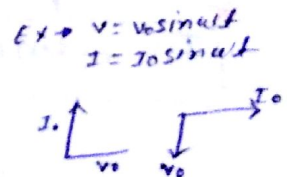 Ex → v = v₀ sin ωt
I = I₀ sin ωt
I₀ I₀
v₀ v₀